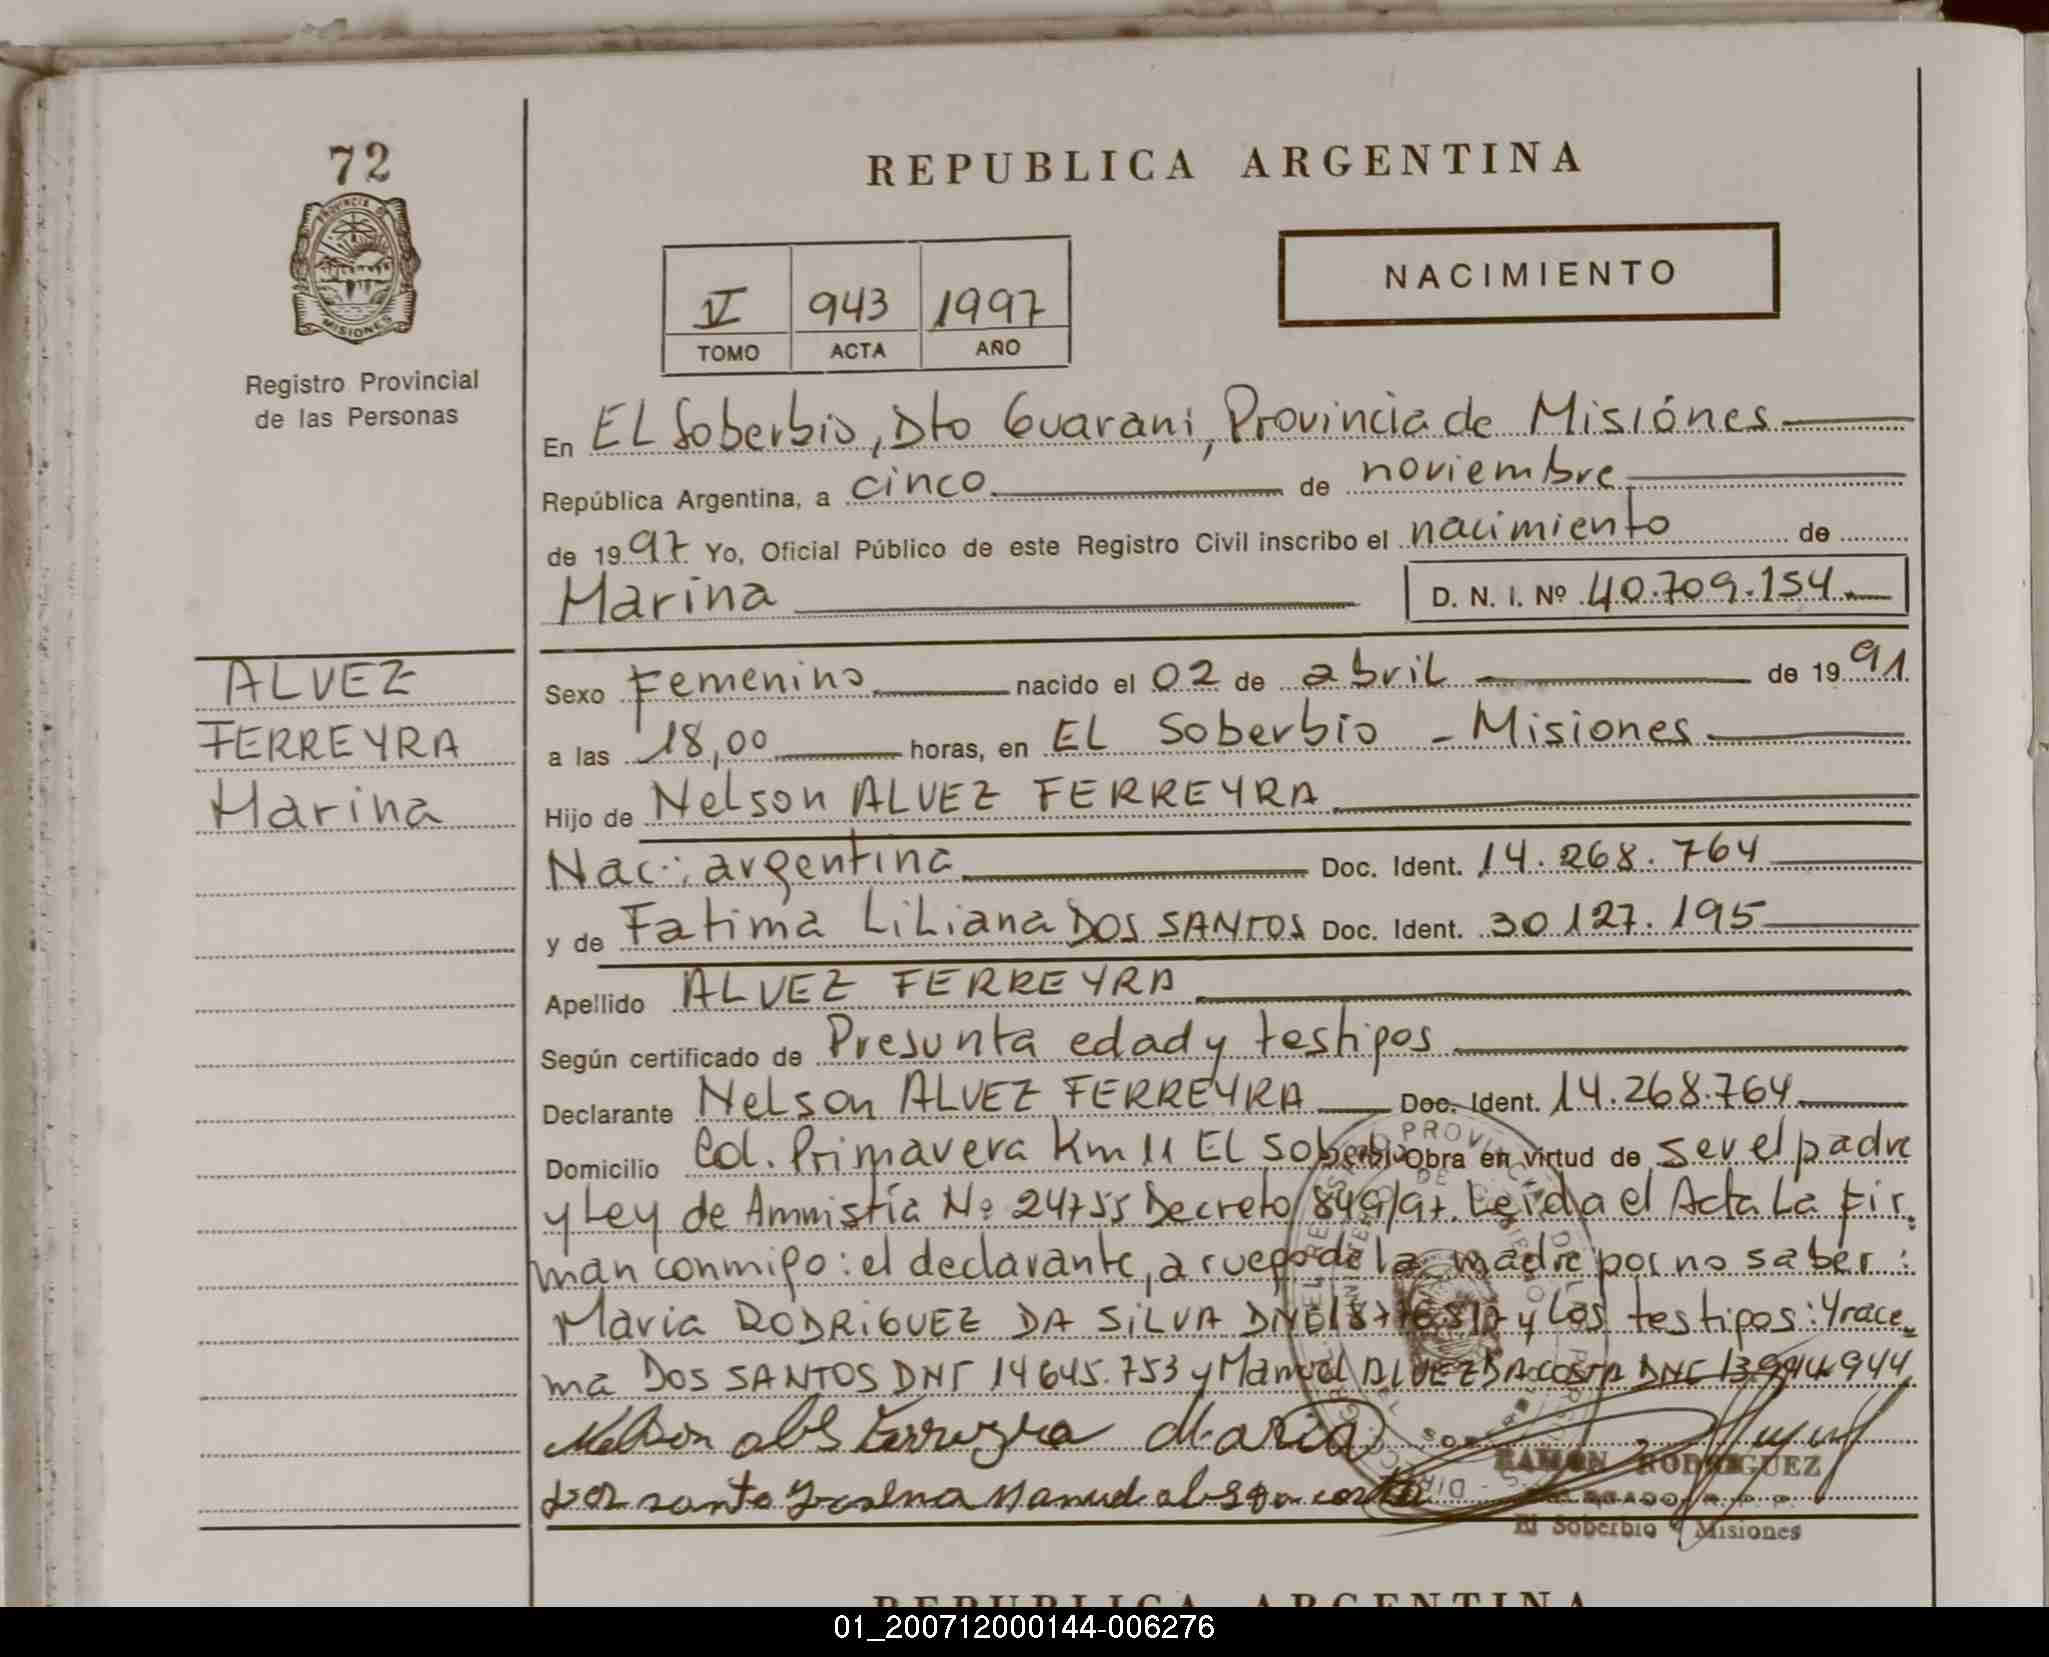 72
PROVINCIA DE
MISIONES
Registro Provincial
de las Personas
REPUBLICA ARGENTINA
NACIMIENTO
V 943 1997
TOMO ACTA AÑO
En EL Soberbio, Dto Guarani, Provincia de Misiónes
República Argentina, a cinco de noviembre
de 1997 Yo, Oficial Público de este Registro Civil inscribo el nacimiento de
Marina D. N. I. Nº 40.709.154.
ALVEZ
FERREYRA
Marina
Sexo Femenino nacido el 02 de abril de 1991
a las 18,00 horas, en EL Soberbio - Misiones
Hijo de Nelson ALVEZ FERREYRA
Nac.: argentina Doc. Ident. 14.268.764
y de Fatima LiLiana DOS SANTOS Doc. Ident. 30.127.195
Apellido ALVEZ FERREYRA
Según certificado de Presunta edad y testigos
Declarante Nelson ALVEZ FERREYRA Doc. Ident. 14.268.764
Domicilio Col. Primavera Km 11 EL Soberbio Obra en virtud de ser el padre
y Ley de Amnistía Nº 24755 Decreto 849/97. Leida el Acta La fir
man conmigo: el declarante, a ruego de la madre por no saber:
Maria RODRIGUEZ DA SILVA DNI y Los testigos: Yrace
ma DOS SANTOS DNI 14645.753 y Manuel ALVEZ DA COSTA DNI 13.944.944
Nelson Ferreyra Maria
RAMON RODRIGUEZ
dos santo Manuel
El Soberbio Misiones
REPUBLICA ARGENTINA
01_200712000144-006276